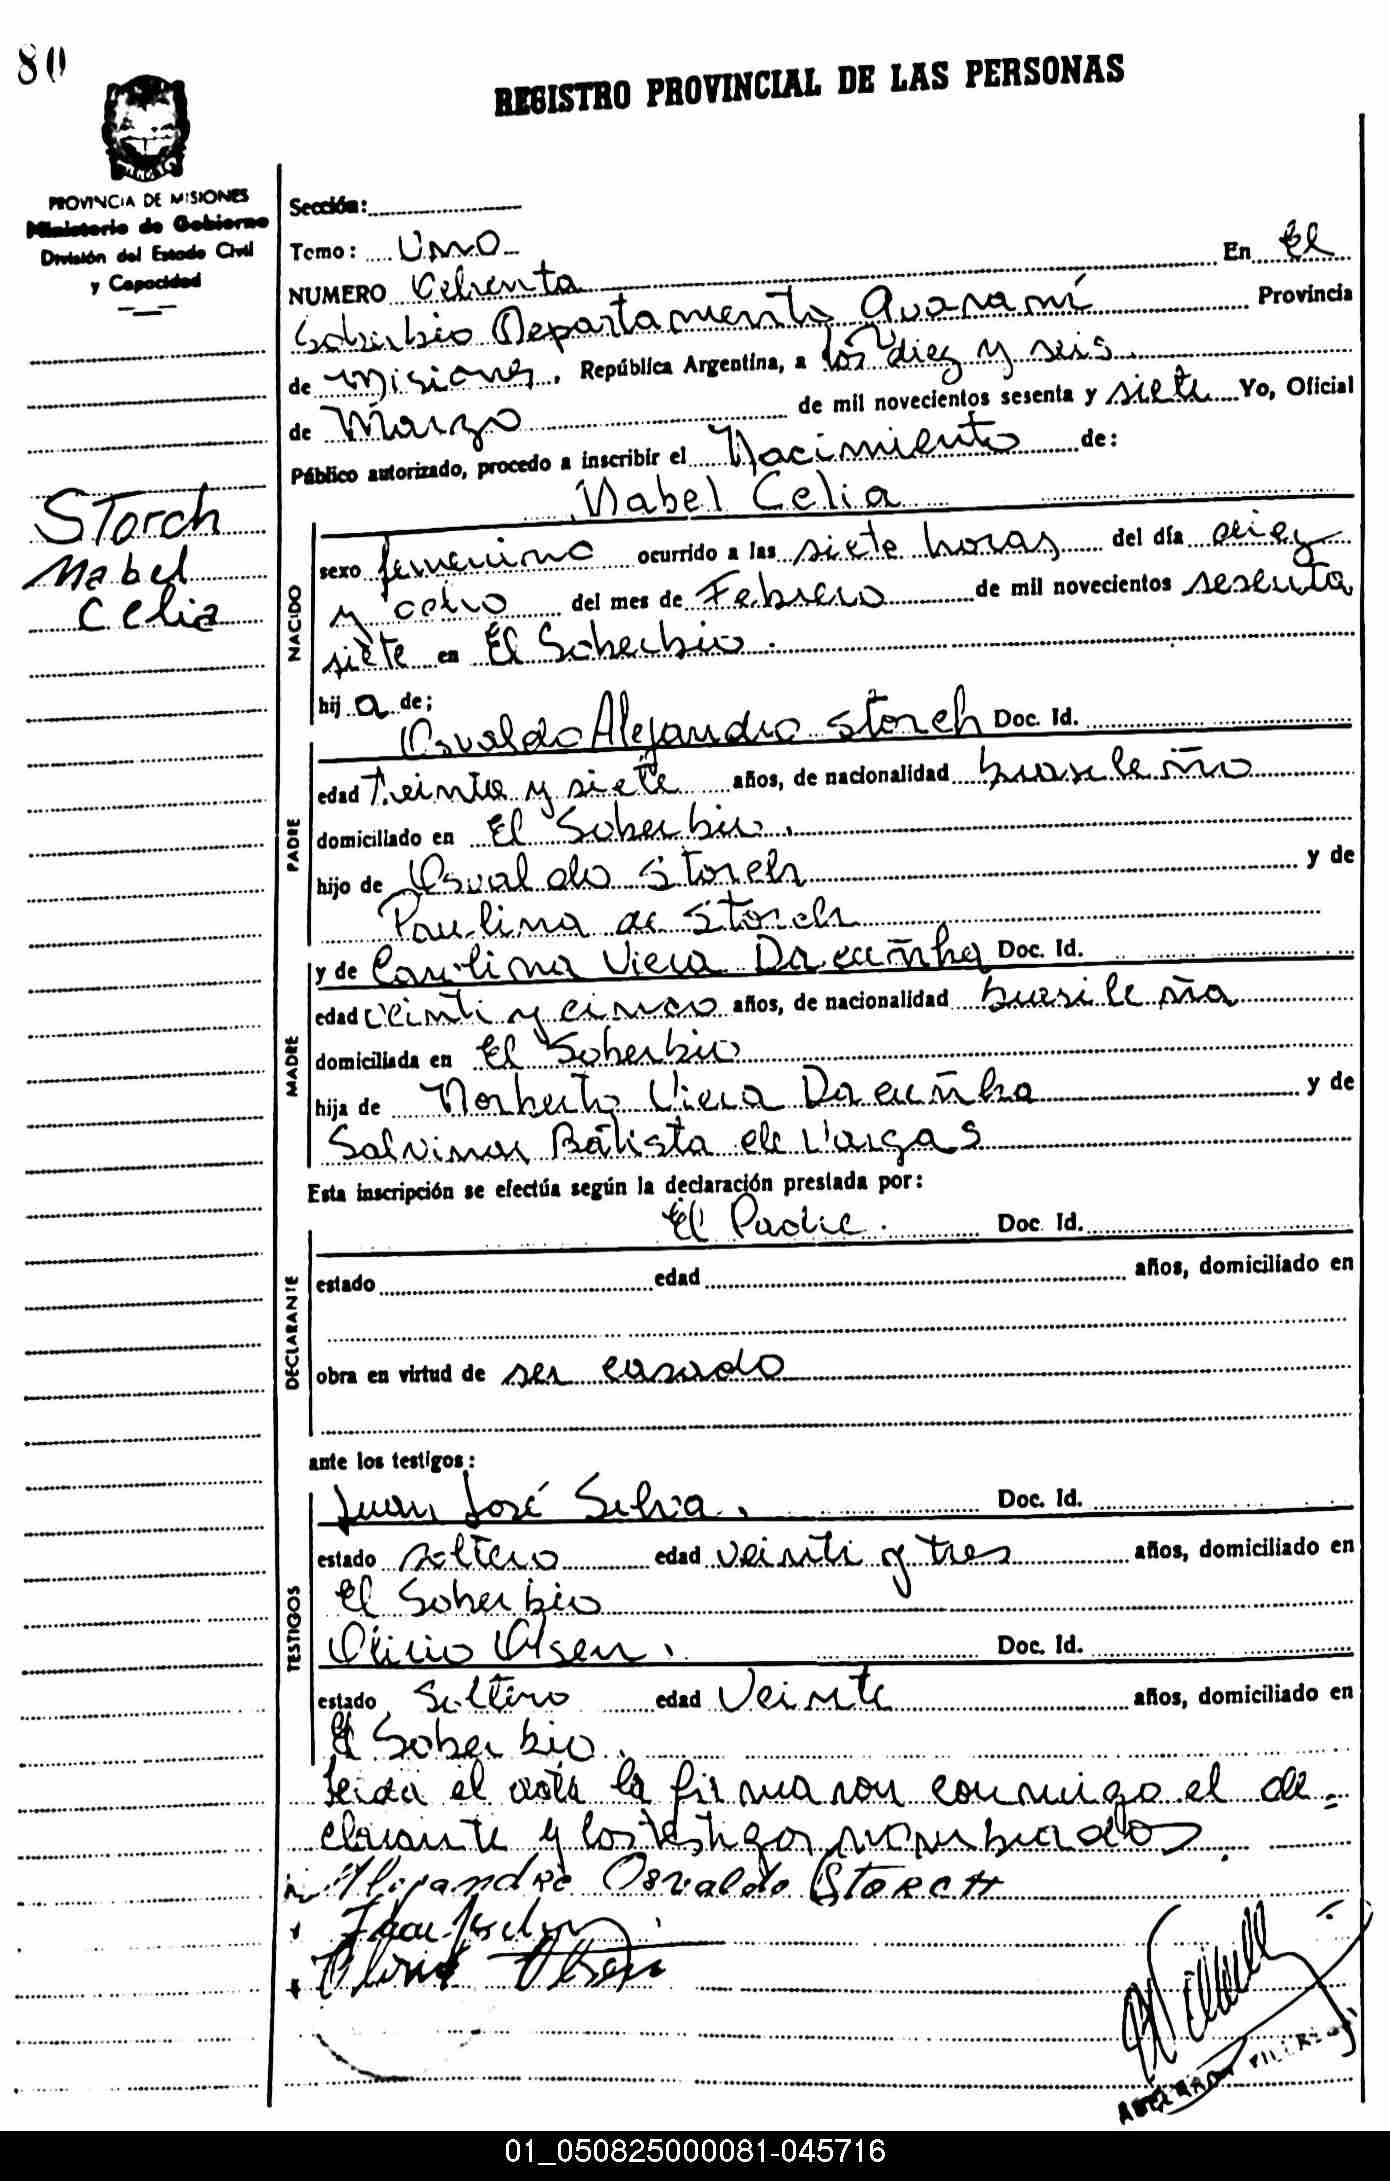 80
REGISTRO PROVINCIAL DE LAS PERSONAS
PROVINCIA DE MISIONES
Ministerio de Gobierno
División del Estado Civil
y Capacidad
Sección:
Tomo: Uno
En El
NUMERO Ochenta
Soberbio Departamento Guaraní Provincia
de Misiones, República Argentina, a los diez y seis
de Marzo de mil novecientos sesenta y siete Yo, Oficial
Público autorizado, procedo a inscribir el Nacimiento de:
Mabel Celia
STorch
Mabel
Celia
NACIDO
sexo femenino ocurrido a las siete horas del día diez
y ocho del mes de Febrero de mil novecientos sesenta
siete en El Soberbio.
hij a de;
PADRE
Osvaldo Alejandro Storch Doc. Id.
edad treinta y siete años, de nacionalidad brasileño
domiciliado en El Soberbio.
hijo de Osvaldo Storch y de
Paulina de Storch
MADRE
y de Carolina Viera Da cuñha Doc. Id.
edad veinti y cinco años, de nacionalidad brasileña
domiciliada en El Soberbio
hija de Norberto Viera Da cuñha y de
Salvinar Batista de Vargas
Esta inscripción se efectúa según la declaración prestada por:
El Padre. Doc. Id.
DECLARANTE
estado edad años, domiciliado en
obra en virtud de ser casado
ante los testigos:
TESTIGOS
Juan José Silva. Doc. Id.
estado soltero edad veinti y tres años, domiciliado en
El Soberbio
Olirio Olsen. Doc. Id.
estado Soltero edad Veinte años, domiciliado en
El Soberbio.
Leida el acta la firmaron conmigo el de-
clarante y los testigos nombrados.
Alejandro Osvaldo STORCH
Olsen
01_050825000081-045716